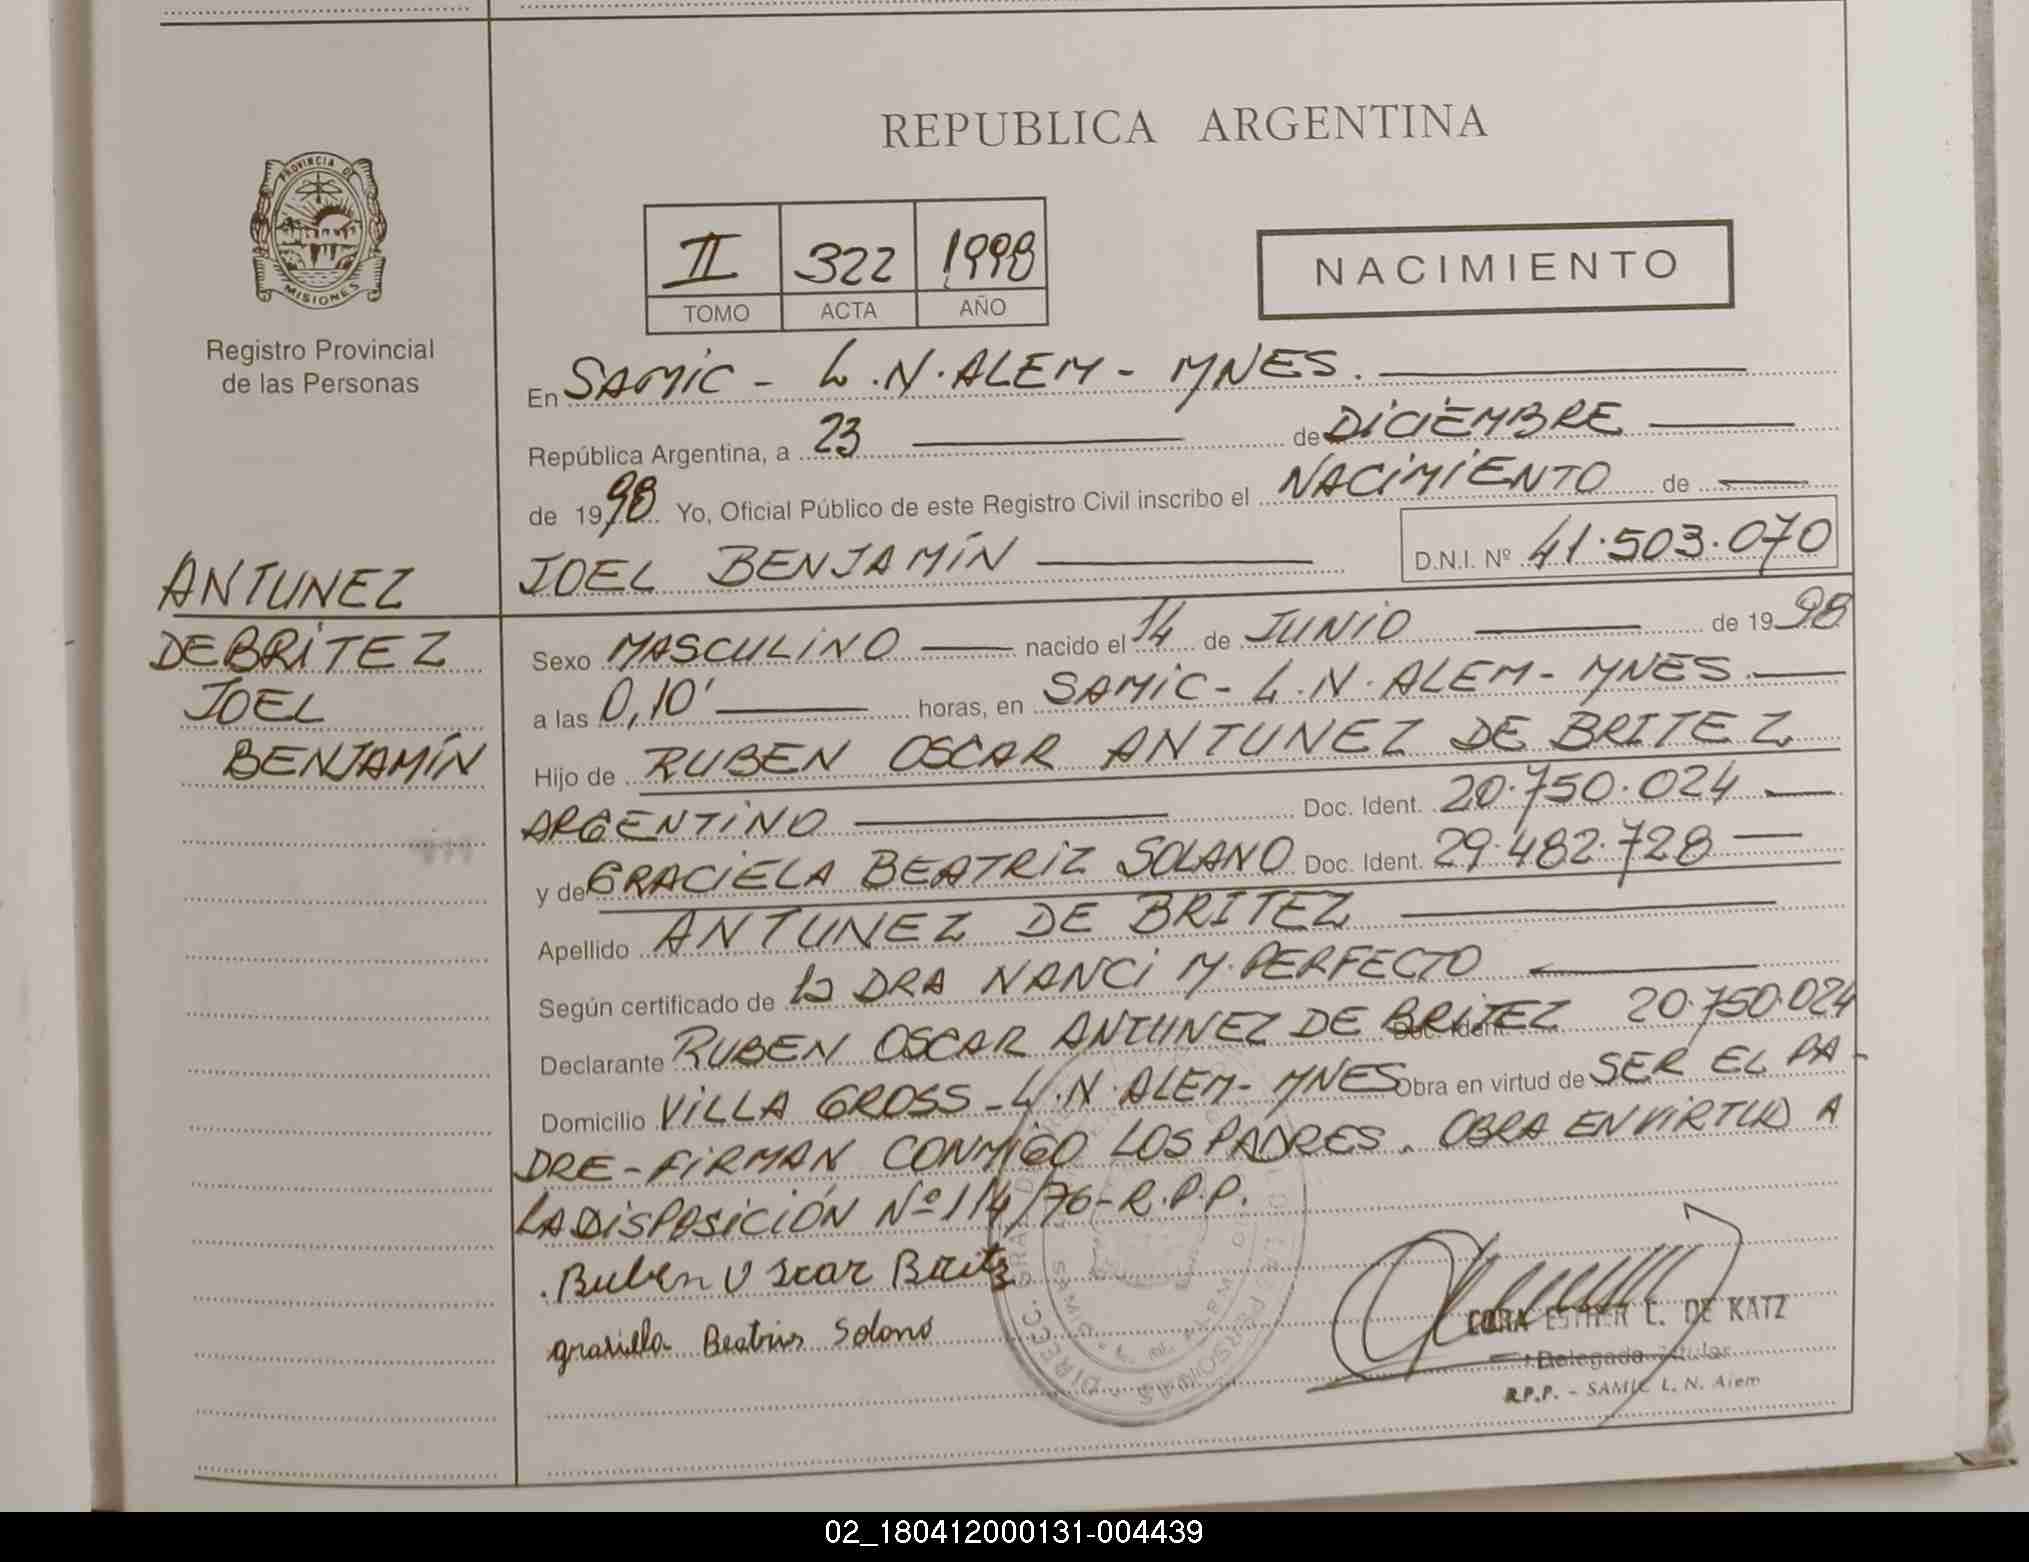 REPUBLICA ARGENTINA
PROVINCIA DE
MISIONES
Registro Provincial
de las Personas
II 322 1998
TOMO ACTA AÑO
NACIMIENTO
En SAMIC - L.N. ALEM - MNES.
República Argentina, a 23 de DICIEMBRE
de 1998 Yo, Oficial Público de este Registro Civil inscribo el NACIMIENTO de
JOEL BENJAMÍN D.N.I. Nº 41.503.070
ANTUNEZ
DE BRITEZ
JOEL
BENJAMÍN
Sexo MASCULINO nacido el 14 de JUNIO de 1998
a las 0,10' horas, en SAMIC - L.N. ALEM - MNES.
Hijo de RUBEN OSCAR ANTUNEZ DE BRITEZ
ARGENTINO Doc. Ident. 20.750.024
y de GRACIELA BEATRIZ SOLANO Doc. Ident. 29.482.728
Apellido ANTUNEZ DE BRITEZ
Según certificado de la DRA NANCI M. PERFECTO
Declarante RUBEN OSCAR ANTUNEZ DE BRITEZ Doc. Ident. 20.750.024
Domicilio VILLA GROSS - L.N. ALEM - MNES Obra en virtud de SER EL PA-
DRE - FIRMAN CONMIGO LOS PADRES. OBRA EN VIRTUD A
LA DISPOSICIÓN Nº 114/76 - R.P.P.
Ruben Oscar Britz
Grasiella Beatris Solano
CORA ESTHER L. DE KATZ
Delegada Titular
R.P.P. - SAMIC L. N. Alem
02_180412000131-004439